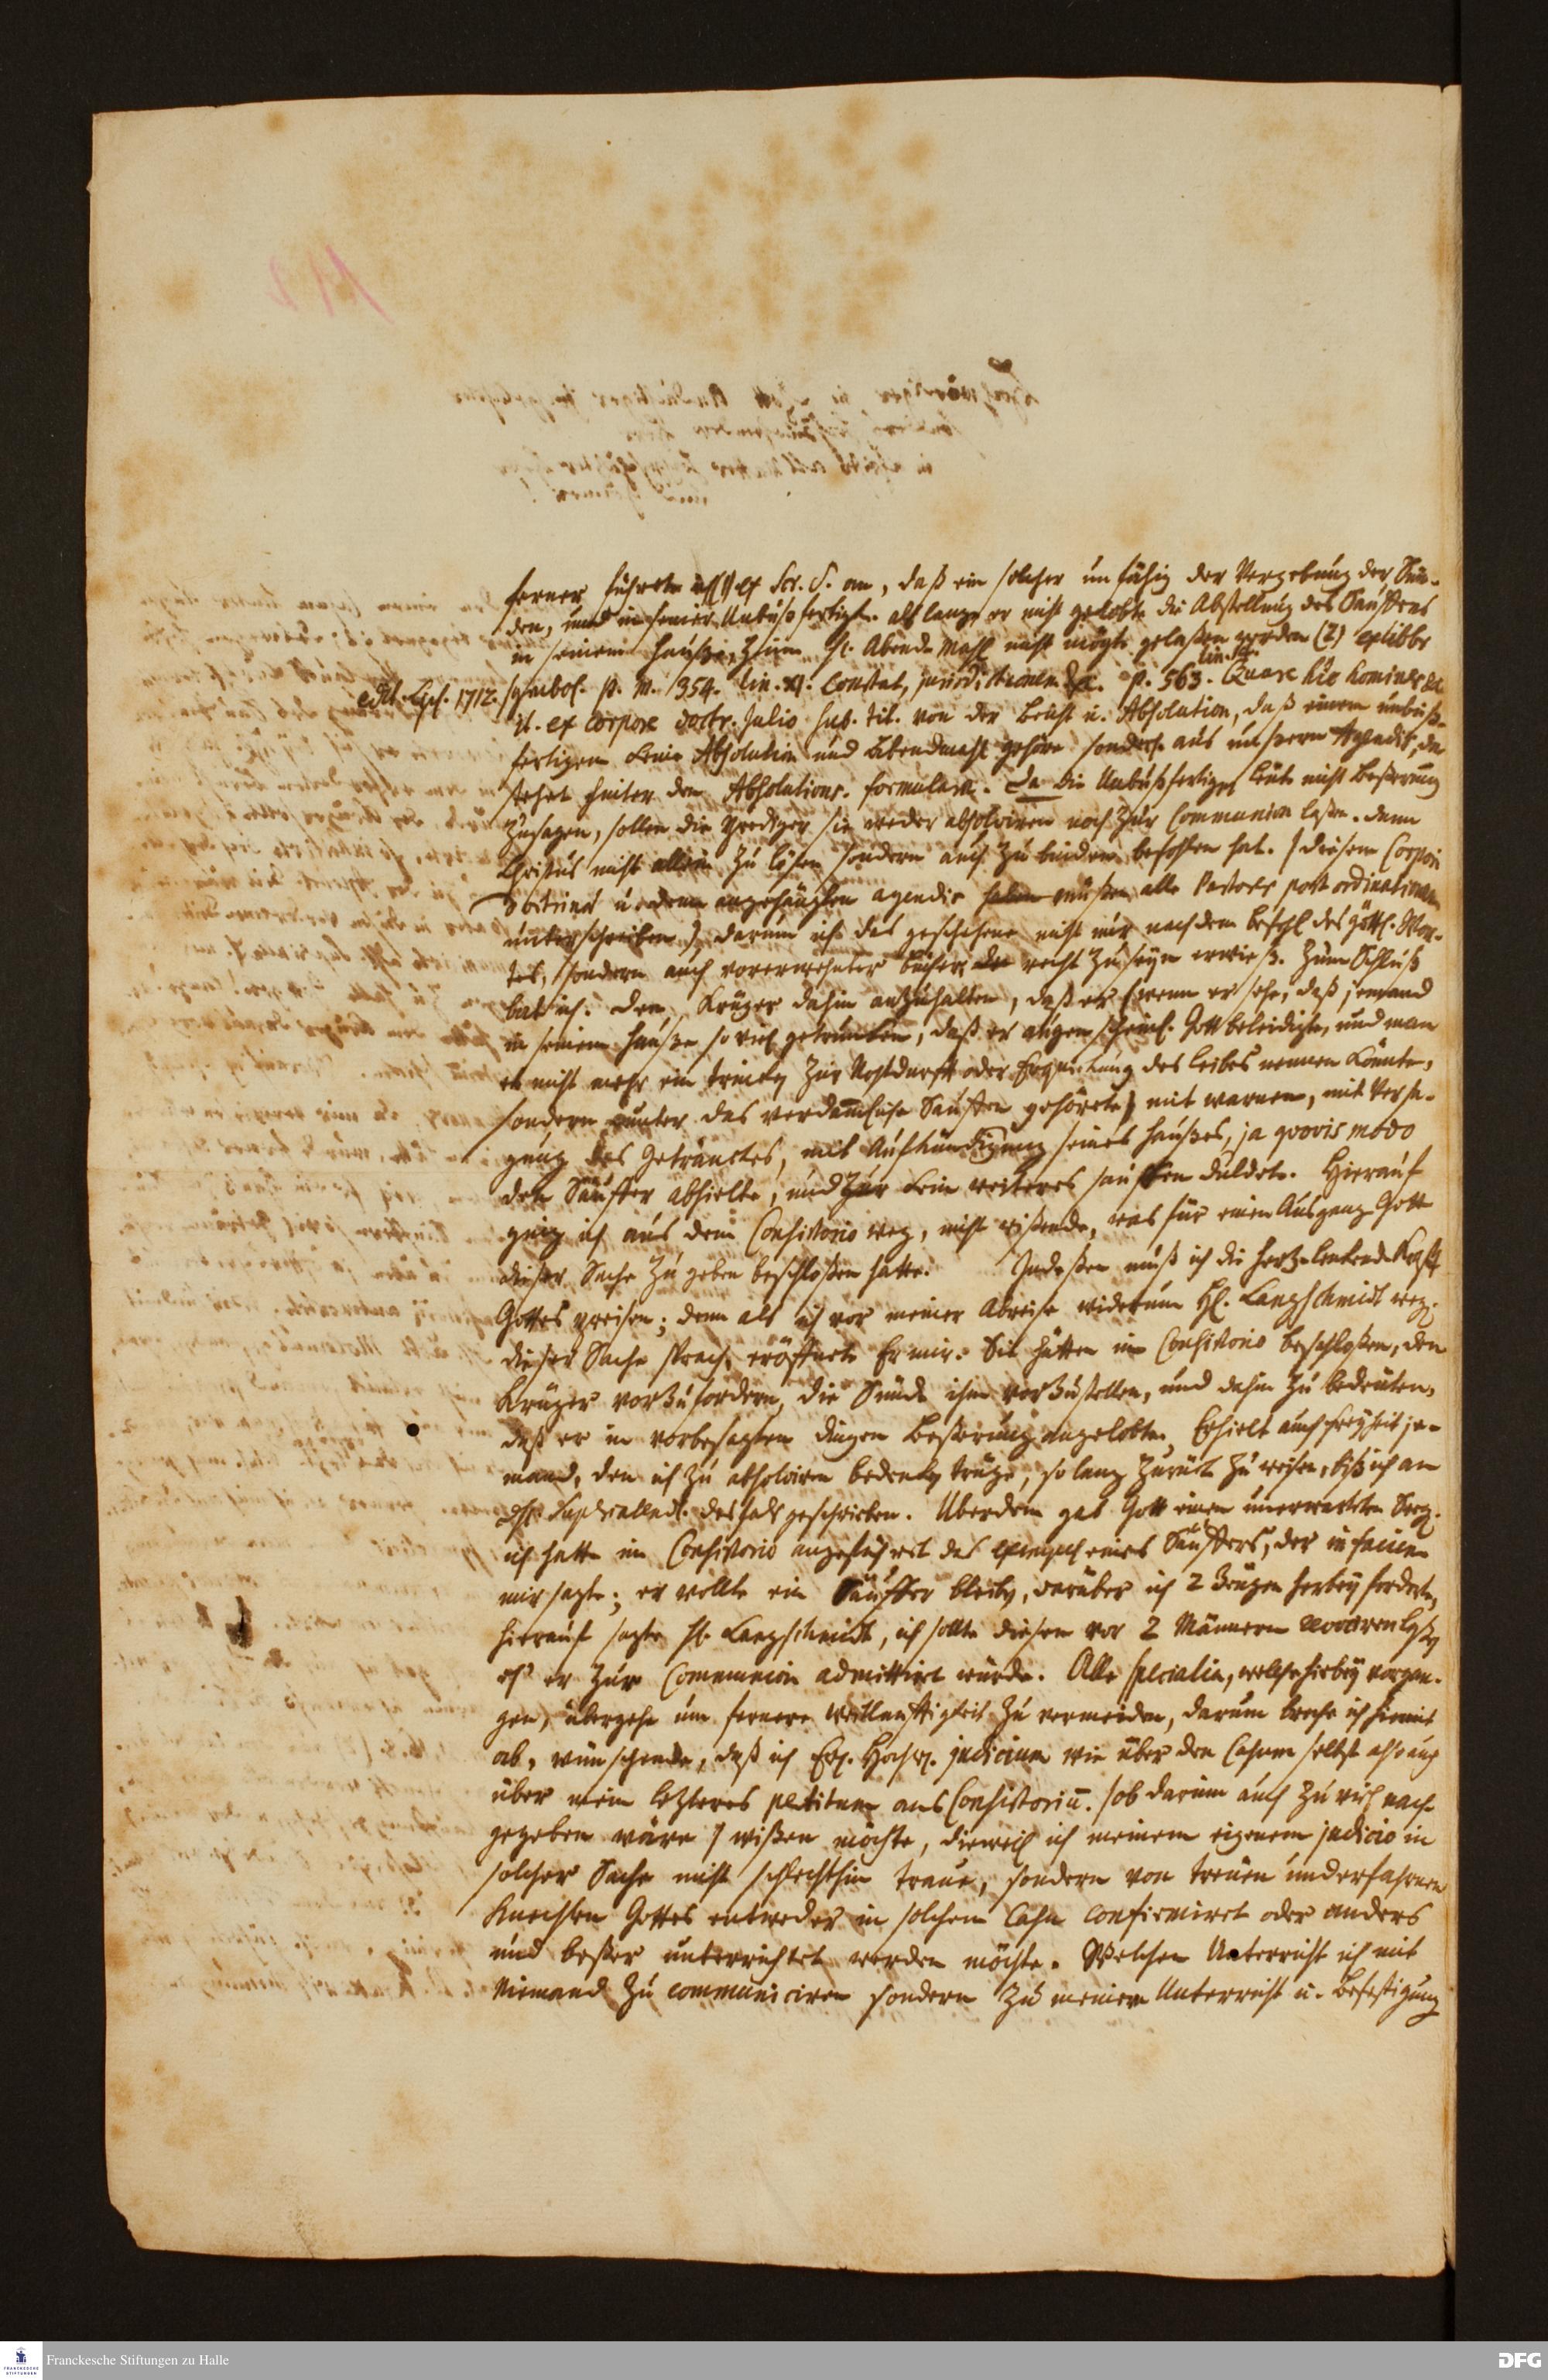 ferner führte ich (1) ex Scr. S. an, daß ein solcher unfähig der Vergebung der Sün-
den, und in seiner Unbußfertigk. als lange er nicht gelobte die Abstellung des Sauffens
in seinem Hauße, zum H. Abendmahl nicht mögte gelaßen werden (2) ex libbr
edit. Lips. 1712. symbol. p. m. 354. lin. XI. Constat, jurisdictionem &c. p. 563. lin. 14. Quare hic homines &c
it. ex corpore doctr. Julio sub. tit. von der Beicht u. Absolution, daß einem unbuß-
fertigen keine Absolution und Abendmahl gehöre sonderl. aus unserm Agendis, da
stehet hinter den Absolutions-formularn. Da die Unbußfertigen Leute nicht Beßerung
zusagen, sollen die Prediger sie weder absolviren noch zur Communion laßen. denn
Christus nicht allein zu lösen sondern auch zu binden befohlen hat. (diesem Corpori
doctrinae u. denen angehängten agendis müßen alle Pastores post ordinationem
unterschreiben) darum ich das geschehene nicht nur nach dem Befehl des göttl. Wor-
tes, sondern auch vorerwehnter bücher recht zu seyn erwieß. Zum Schluß
bat ich den Krüger dahin anzuhalten, daß er (wenn er sehe, daß jemand
in seinem Hauße so viel getruncken, daß er augenscheinl. Gott beleidigte, und man
es nicht mehr ein trincken zur Nothdurfft oder Erquickung des Leibes nennen könnte,
sondern unter das verdamliche Sauffen gehörete) mit warnen, mit Versa-
gung des Geträncktes, mit Aufkündigung seines Haußes, ja quovis modo
den Säuffer abhielte, und gar kein weiteres sauffen duldete. Hierauf
ging ich aus dem Consistorio weg, nicht wißende, was für einen Ausgang Gott
dieser Sache zu geben beschloßen hatte. Indeßen muß ich die hertz-lenkende Krafft
Gottes preisen; denn als ich vor meiner Abreise widerum H. Langschmidt weg.
dieser Sache sprach, eröffnete Er mir. Sie hätten im Consistorio beschloßen, den
Krüger vorzufordern, die Sünde ihm vorzustellen, und dahin zu bedeuten,
daß er in vorbesagten dingen Beßerung angelobte. Erhielt auch freyheit je-
mand, den ich zu absolviren bedencken trüge, so lang zurück zu weisen, biß ich an
desfals geschrieben. Uberdem gab Gott einen unerwarteten Seeg.
ich hatte im Consistorio angeführet das exempel eines Säuffers, der in faciem
mir sagte; er wollte ein Säuffer bleiben, darüber ich 2 Zeugen herbey forderte,
hierauf sagte H. Langschmidt, ich sollte diesen vor 2 Männern revociren laßen
ehe er zur Communion admittiret würde. Alle specialia, welche hiebey vorgan-
gen, übergehe um fernere weitläufftigkeit zu vermeiden, darum breche ich hiemit
ab, wünschende, daß ich Ew. Hochw. judicium wie über den Casum selbst also auch
über mein lezteres petitum ans Consistoriū. (ob darum auch zu viel nach-
gegeben wäre) wißen möchte, dieweil ich meinem eigenem judicio in
solcher Sache nicht schlechthin traue, sondern von treuen und erfahrnen
Knechten Gottes entweder in solchem Casu confirmiret oder anders
und beßer unterrichtet werden möchte. Welchen Unterricht ich mit
Niemand zu communiciren sondern zu meinem Unterricht u. Befestigung
Franckesche Stiftungen zu Halle
DFG